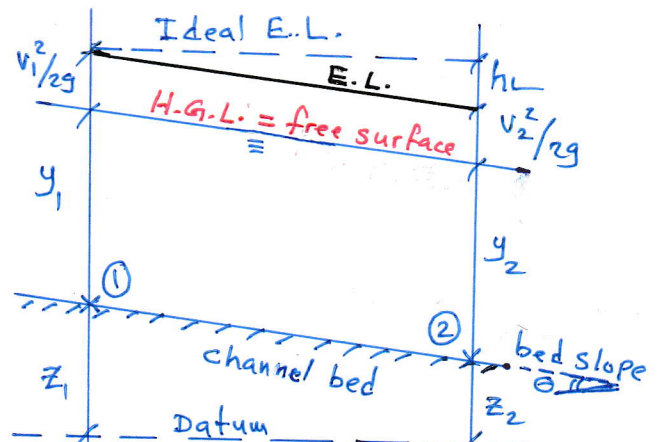 Ideal E.L.
v₁²/2g
E.L.
hL
H.G.L. = free surface
v₂²/2g
y₁
y₂
①
②
channel bed
bed slope
θ
z₁
z₂
Datum